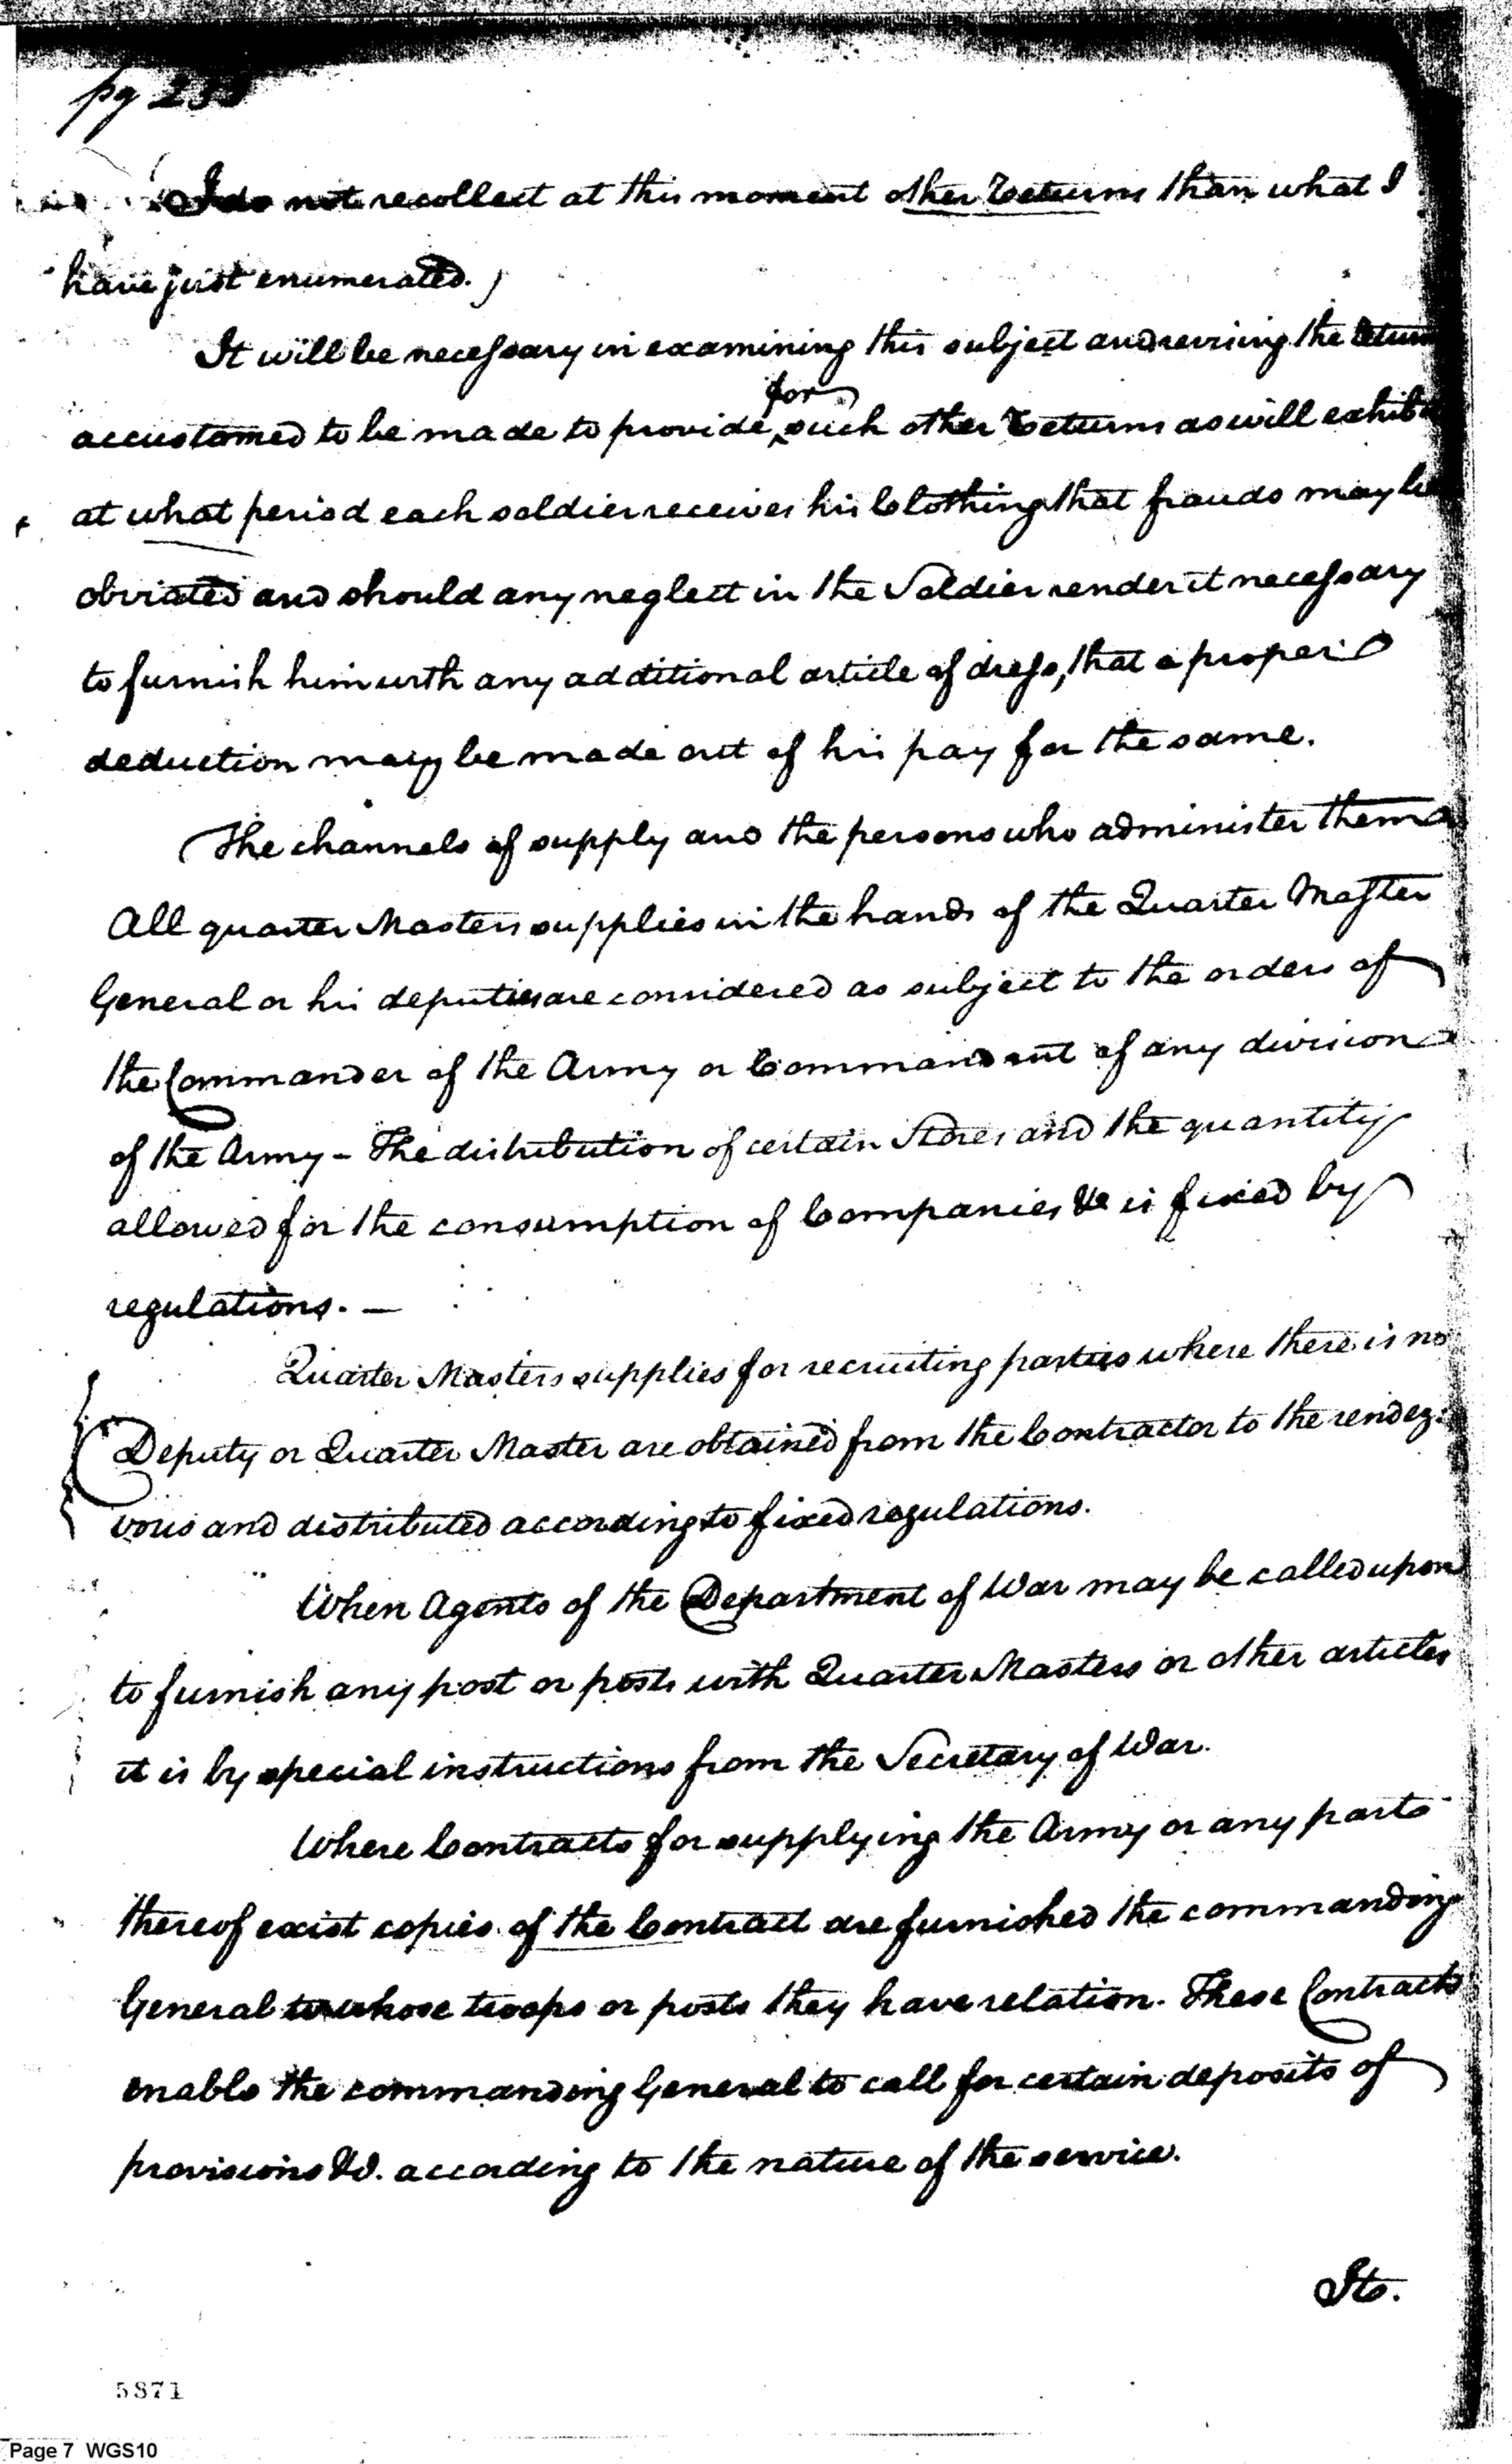 pg 233
I do not recollect at this moment other Returns than what I
have just enumerated.)
It will be necessary in examining this subject and revising the Return
for
accustomed to be made to provide such other Returns as will exhibit
at what period each soldier receives his Clothing that frauds may be
obviated and should any neglect in the Soldier render it necessary
to furnish him with any additional article of dress, that a proper
deduction may be made out of his pay for the same.
The channels of supply and the persons who administer them
All quarter Masters supplies in the hands of the Quarter Master
General or his deputies are considered as subject to the orders of
the Commander of the Army or Commandant of any division
of the Army - The distribution of certain Stores and the quantity
allowed for the consumption of Companies &c is fixed by
regulations. —
Quarter Masters supplies for recruiting parties where there is no
Deputy or Quarter Master are obtained from the Contractor to the rendez:
vous and distributed according to fixed regulations.
When Agents of the Department of War may be called upon
to furnish any post or posts with Quarter Masters or other articles
it is by special instructions from the Secretary of War.
Where Contracts for supplying the Army or any parts
thereof exist copies of the Contract are furnished the commanding
General to whose troops or posts they have relation. These Contracts
enable the commanding General to call for certain deposits of
provisions &c. according to the nature of the service.
Sto.
5871
Page 7 WGS10